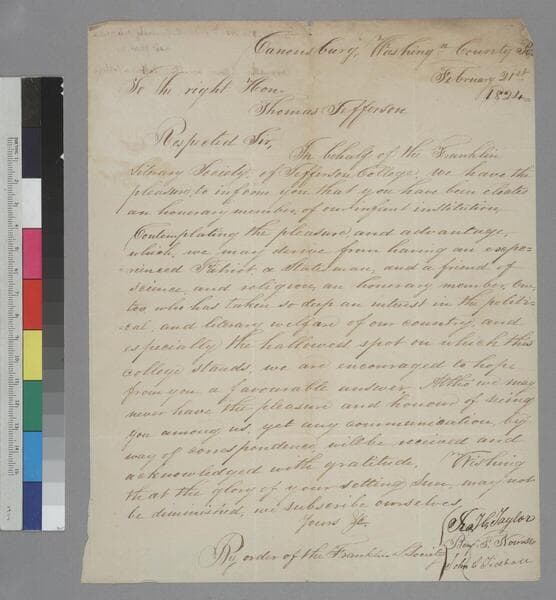 Canonsburg, Washingn County Pa.
February 21st
1824
To the right Hon.
Thomas Jefferson
Respected Sir,
In behalf of the Franklin
Literary Society, of Jefferson College, we have the
pleasure, to inform you that you have been elected
an honorary member, of our infant institution,
Contemplating the pleasure, and advantage,
which, we may derive from having an expe-
-rienced Patriot a Statesman, and a friend of
science, and religion, an honorary member, One,
too who has taken so deep an interest in the politi-
-cal, and literary welfare of our country, and
especially the hallowed spot on which this
College stands, we are encouraged to hope
from you a favourable answer. Altho' we may
never have the pleasure and honour of seeing
you among us, yet any communication, by
way of correspondence will be received and
acknowledged with gratitude. Wishing
that the glory of your setting Sun, may not
be diminished, we subscribe ourselves,
Yours &c.
By order of the Franklin L Society
Taylor
Benj. F.
John C